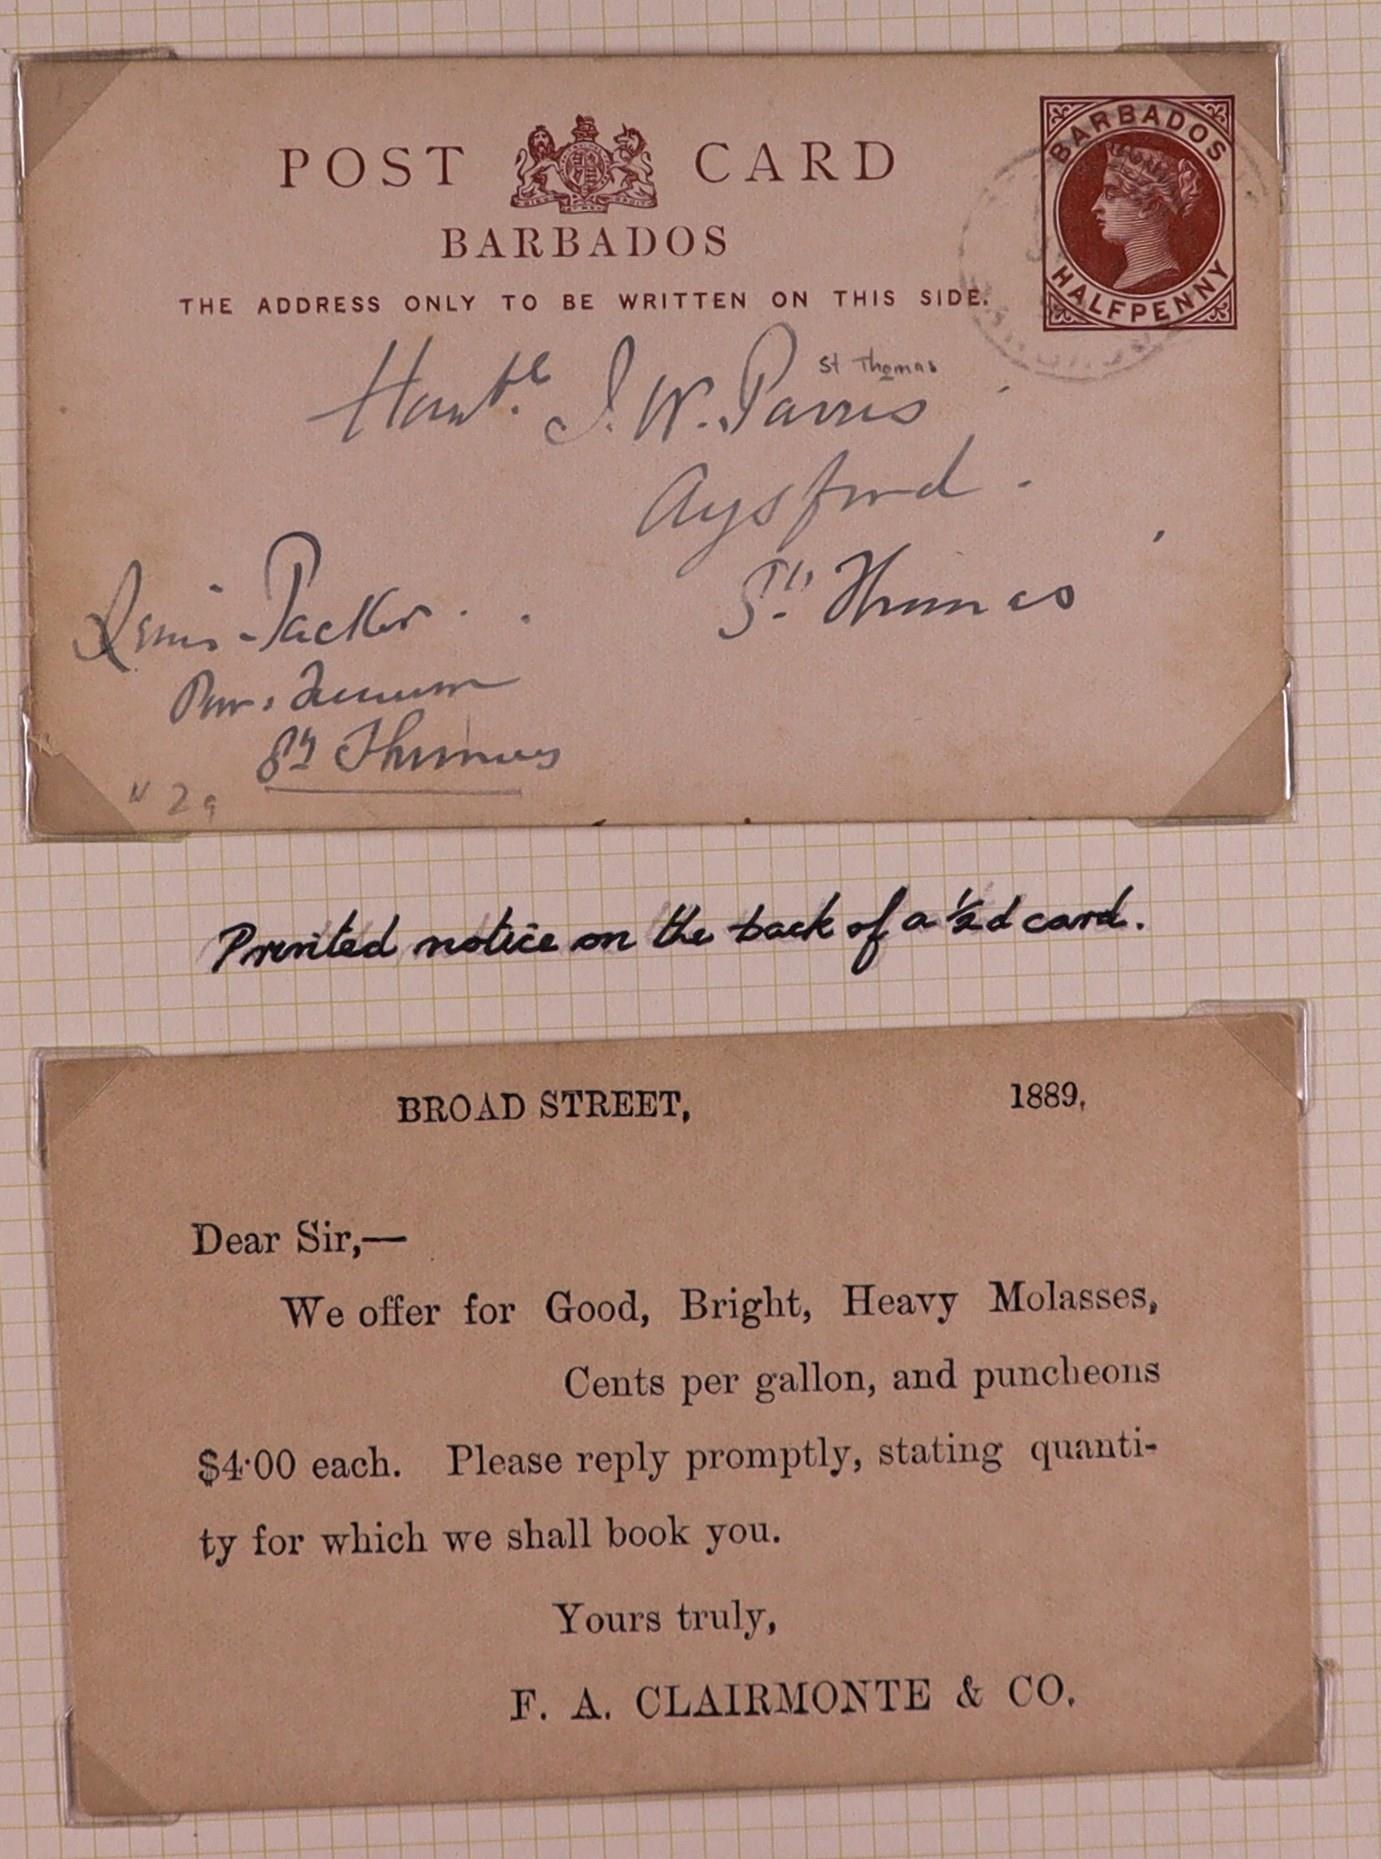 POST CARD
BARBADOS
THE ADDRESS ONLY TO BE WRITTEN ON THIS SIDE.
BARBADOS
HALFPENNY
Honble. J. W. Parris
St Thomas
Aysford.
St. Thomas
Packer.
St Thomas
Printed notice on the back of a ½d card.
BROAD STREET, 1889.
Dear Sir,—
We offer for Good, Bright, Heavy Molasses,
Cents per gallon, and puncheons
$4·00 each. Please reply promptly, stating quanti-
ty for which we shall book you.
Yours truly,
F. A. CLAIRMONTE & CO.